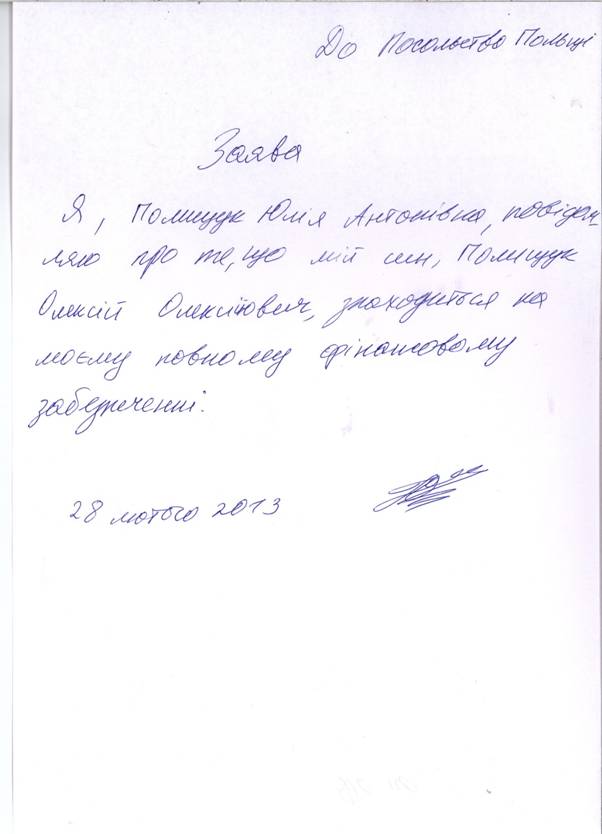 До Посольство Польщі
Заява
Я, Полищук Юлія Антонівна, повідом-
ляю про те, що мій син, Полищук
Олексій Олексійович, знаходиться на
моєму повному фінансовому
забезпеченні.
28 лютого 2013